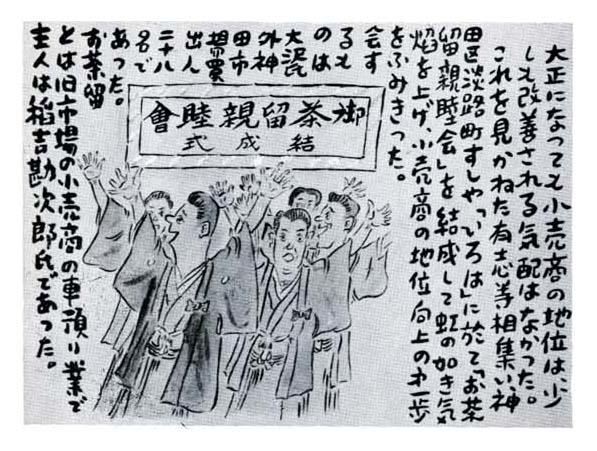 大正になっても小売商の地位は少
しも改善される気配はなかった。
これを見かねた有志等相集い、神
田区淡路町すしや「いろは」に於て「お茶
留親睦会」を結成して虹の如き気
焔を上げ、小売商の地位向上の才一歩
をふみきった。
会す
るも
のは
大沢
外神
田市
場買
出人
二十八
名で
あった。
お茶留
とは旧市場の小売商の車預り業で
主人は稲吉勘次郎氏であった。
御茶留親睦會
結成式